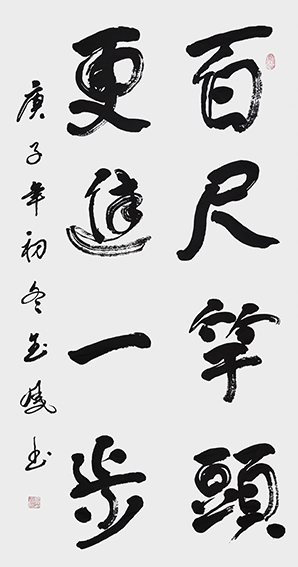 百尺竿頭
更進一步
庚子年初冬玉成书